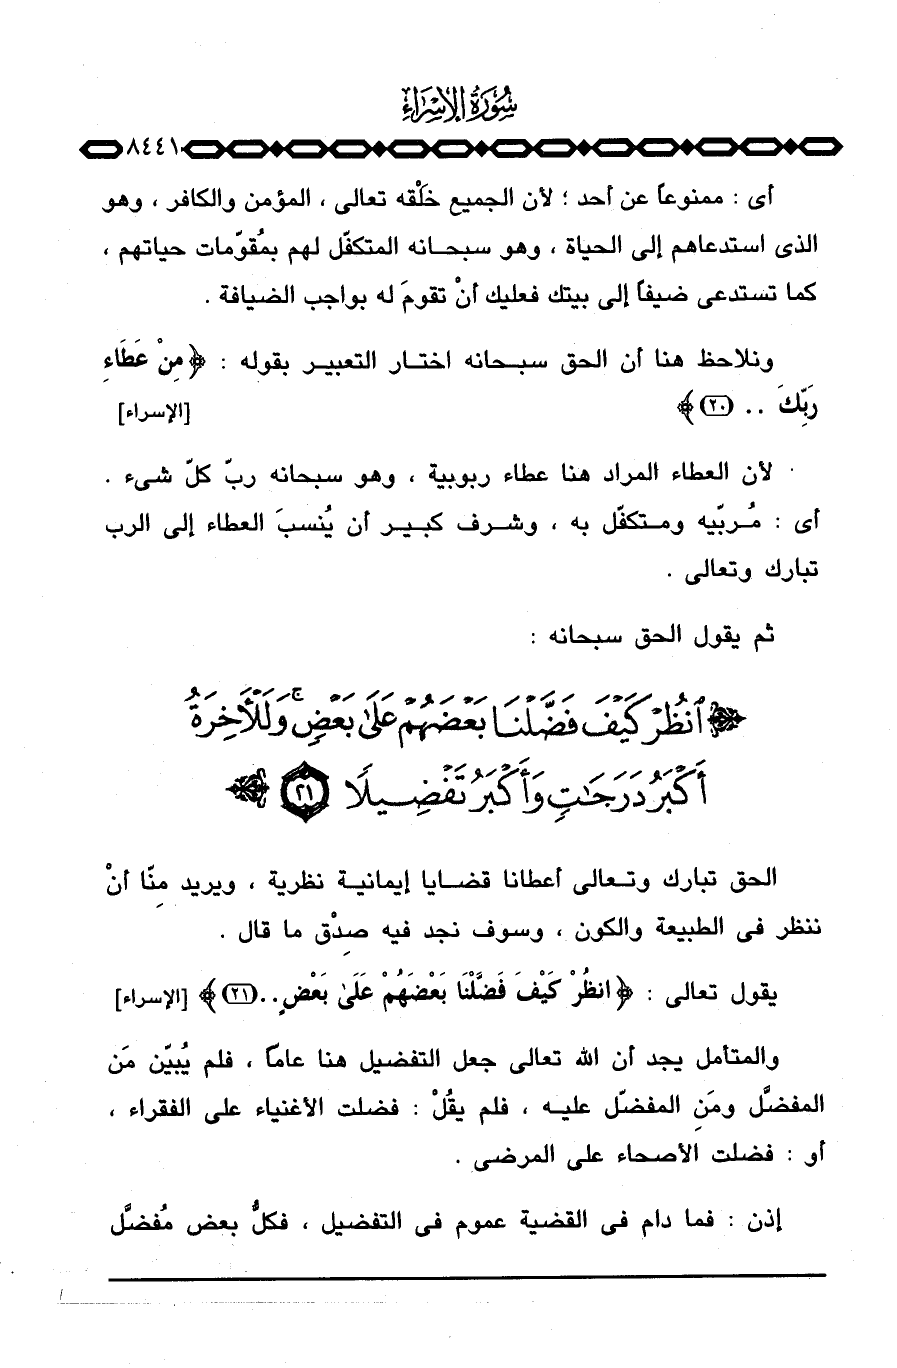 سُورَةُ الإِسْرَاءِ
٨٤٤١
أى : ممنوعاً عن أحد ؛ لأن الجميع خَلْقه تعالى ، المؤمن والكافر ، وهو
الذى استدعاهم إلى الحياة ، وهو سبحانه المتكفّل لهم بمُقوّمات حياتهم ،
كما تستدعى ضيفاً إلى بيتك فعليك أنْ تقومَ له بواجب الضيافة .
ونلاحظ هنا أن الحق سبحانه اختار التعبير بقوله : ﴿ مِنْ عَطَاءِ
رَبِّكَ .. (٢٠) ﴾ [الإسراء]
لأن العطاء المراد هنا عطاء ربوبية ، وهو سبحانه ربّ كلّ شىء .
أى : مُربّيه ومتكفّل به ، وشرف كبير أن يُنسبَ العطاء إلى الرب
تبارك وتعالى .
ثم يقول الحق سبحانه :
﴿ ٱنظُرۡ كَيۡفَ فَضَّلۡنَا بَعۡضَهُمۡ عَلَىٰ بَعۡضٖۚ وَلَلۡأٓخِرَةُ
أَكۡبَرُ دَرَجَٰتٖ وَأَكۡبَرُ تَفۡضِيلٗا ٢١ ﴾
الحق تبارك وتعالى أعطانا قضايا إيمانية نظرية ، ويريد مِنّا أنْ
ننظر فى الطبيعة والكون ، وسوف نجد فيه صِدْق ما قال .
يقول تعالى : ﴿ انظُرْ كَيْفَ فَضَّلْنَا بَعْضَهُمْ عَلَىٰ بَعْضٍ .. (٢١) ﴾ [الإسراء]
والمتأمل يجد أن الله تعالى جعل التفضيل هنا عاماً ، فلم يُبيّن مَن
المفضَّل ومَنِ المفضّل عليه ، فلم يقُلْ : فضلت الأغنياء على الفقراء ،
أو : فضلت الأصحاء على المرضى .
إذن : فما دام فى القضية عموم فى التفضيل ، فكلُّ بعض مُفضَّل